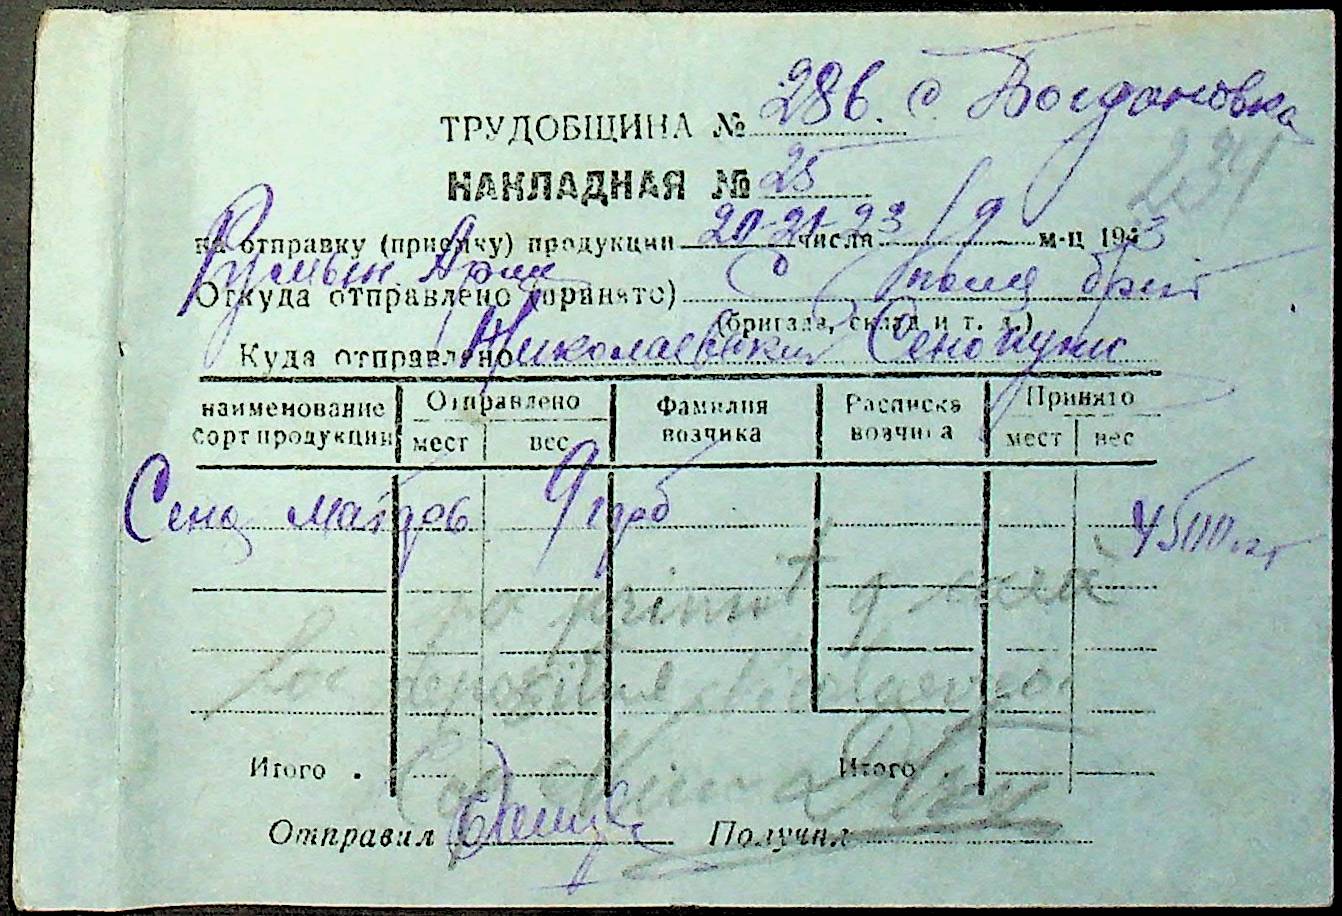 ТРУДОБЩИНА № 286. с. Богдановка
234
НАКЛАДНАЯ № 25
на отправку (приемку) продукции 20-21-23 числа /9 м-ц 1943
Румын Арм
Откуда отправлено (принято) С поля бриг
(бригада, склад и т. д.)
Куда отправлено Николаевский Сенопункт
наименование сорт продукции Отправлено мест вес Фамилия возчика Расписка возчика Принято мест вес
Сено 9 гарб 4500 кг
primit 9
Loc depozitul Nicolaevca
Итого . Итого .
Отправил Получил